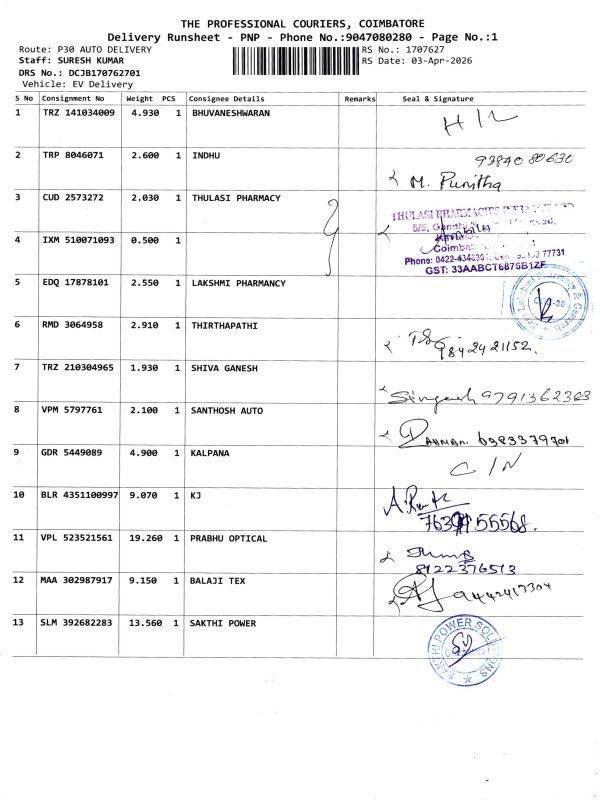 THE PROFESSIONAL COURIERS, COIMBATORE
Delivery Runsheet - PNP - Phone No.:9047080280 - Page No.:1
Route: P30 AUTO DELIVERY
RS No.: 1707627
Staff: SURESH KUMAR
RS Date: 03-Apr-2026
DRS No.: DCJB170762701
Vehicle: EV Delivery
S No Consignment No Weight PCS Consignee Details Remarks Seal & Signature
1 TRZ 141034009 4.930 1 BHUVANESHWARAN
2 TRP 8046071 2.600 1 INDHU 9384080630
M. Punitha
3 CUD 2573272 2.030 1 THULASI PHARMACY
4 IXM 510071093 0.500 1
GST: 33AABCT6875B1ZF
5 EDQ 17878101 2.550 1 LAKSHMI PHARMANCY
6 RMD 3064958 2.910 1 THIRTHAPATHI
9842421152.
7 TRZ 210304965 1.930 1 SHIVA GANESH
8 VPM 5797761 2.100 1 SANTHOSH AUTO
6383379701
9 GDR 5449089 4.900 1 KALPANA
10 BLR 4351100997 9.070 1 KJ
11 VPL 523521561 19.260 1 PRABHU OPTICAL
8122376513
12 MAA 302987917 9.150 1 BALAJI TEX
9442417304
13 SLM 392682283 13.560 1 SAKTHI POWER
SAKTHI POWER SOLUTIONS